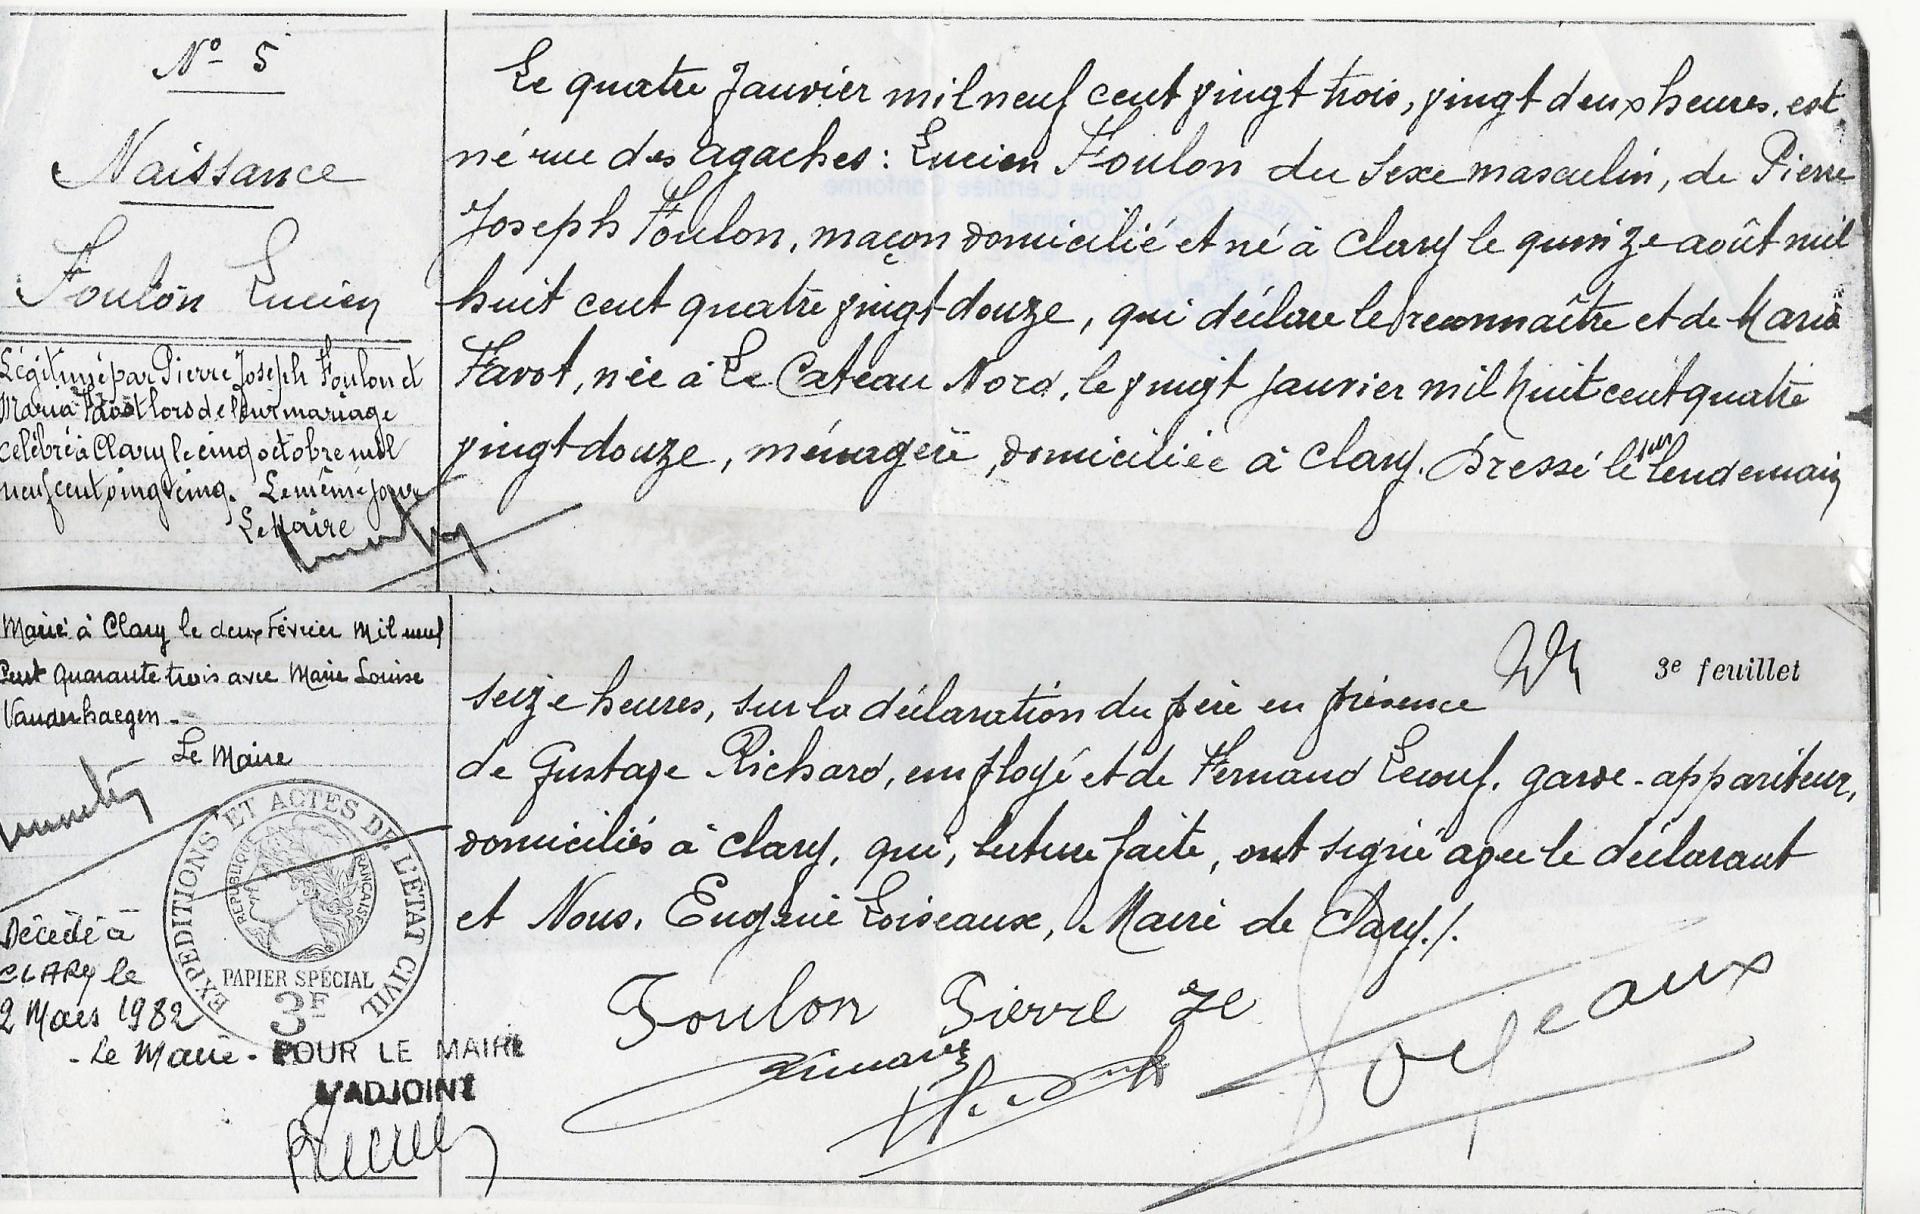 N° 5
Naissance
Foulon Lucien
Légitimé par Pierre Joseph Foulon et
Maria Favot lors de leur mariage
célébré à Clary le cinq octobre mil
neuf cent vingt cinq. Le même jour
Le Maire
Marié à Clary le deux Février Mil neuf
Cent quarante trois avec Marie Louise
Vanderhaegen -
Le Maire
Décédé à
CLARY le
2 Mars 1982
- Le Maire -
POUR LE MAIRE
L'ADJOINT
EXPEDITIONS ET ACTES DE L'ETAT CIVIL
REPUBLIQUE FRANCAISE
PAPIER SPÉCIAL
3F
Le quatre Janvier mil neuf cent vingt trois, vingt deux heures, est
né rue des Agaches : Lucien Foulon du sexe masculin, de Pierre
Joseph Foulon, maçon domicilié et né à Clary le quinze août mil
huit cent quatre vingt douze, qui déclare le reconnaître et de Maria
Favot, née à Le Cateau Nord, le vingt janvier mil huit cent quatre
vingt douze, ménagère, domiciliée à Clary. Dressé le lendemain
3e feuillet
seize heures, sur la déclaration du père en présence
de Gustave Richard, employé et de Fernand Lecouf, garde-appariteur,
domiciliés à Clary, qui, lecture faite, ont signé avec le déclarant
et Nous, Eugène Loiseaux, Maire de Clary./.
Foulon Pierre Je
Loiseaux
Copie Certifiée Conforme